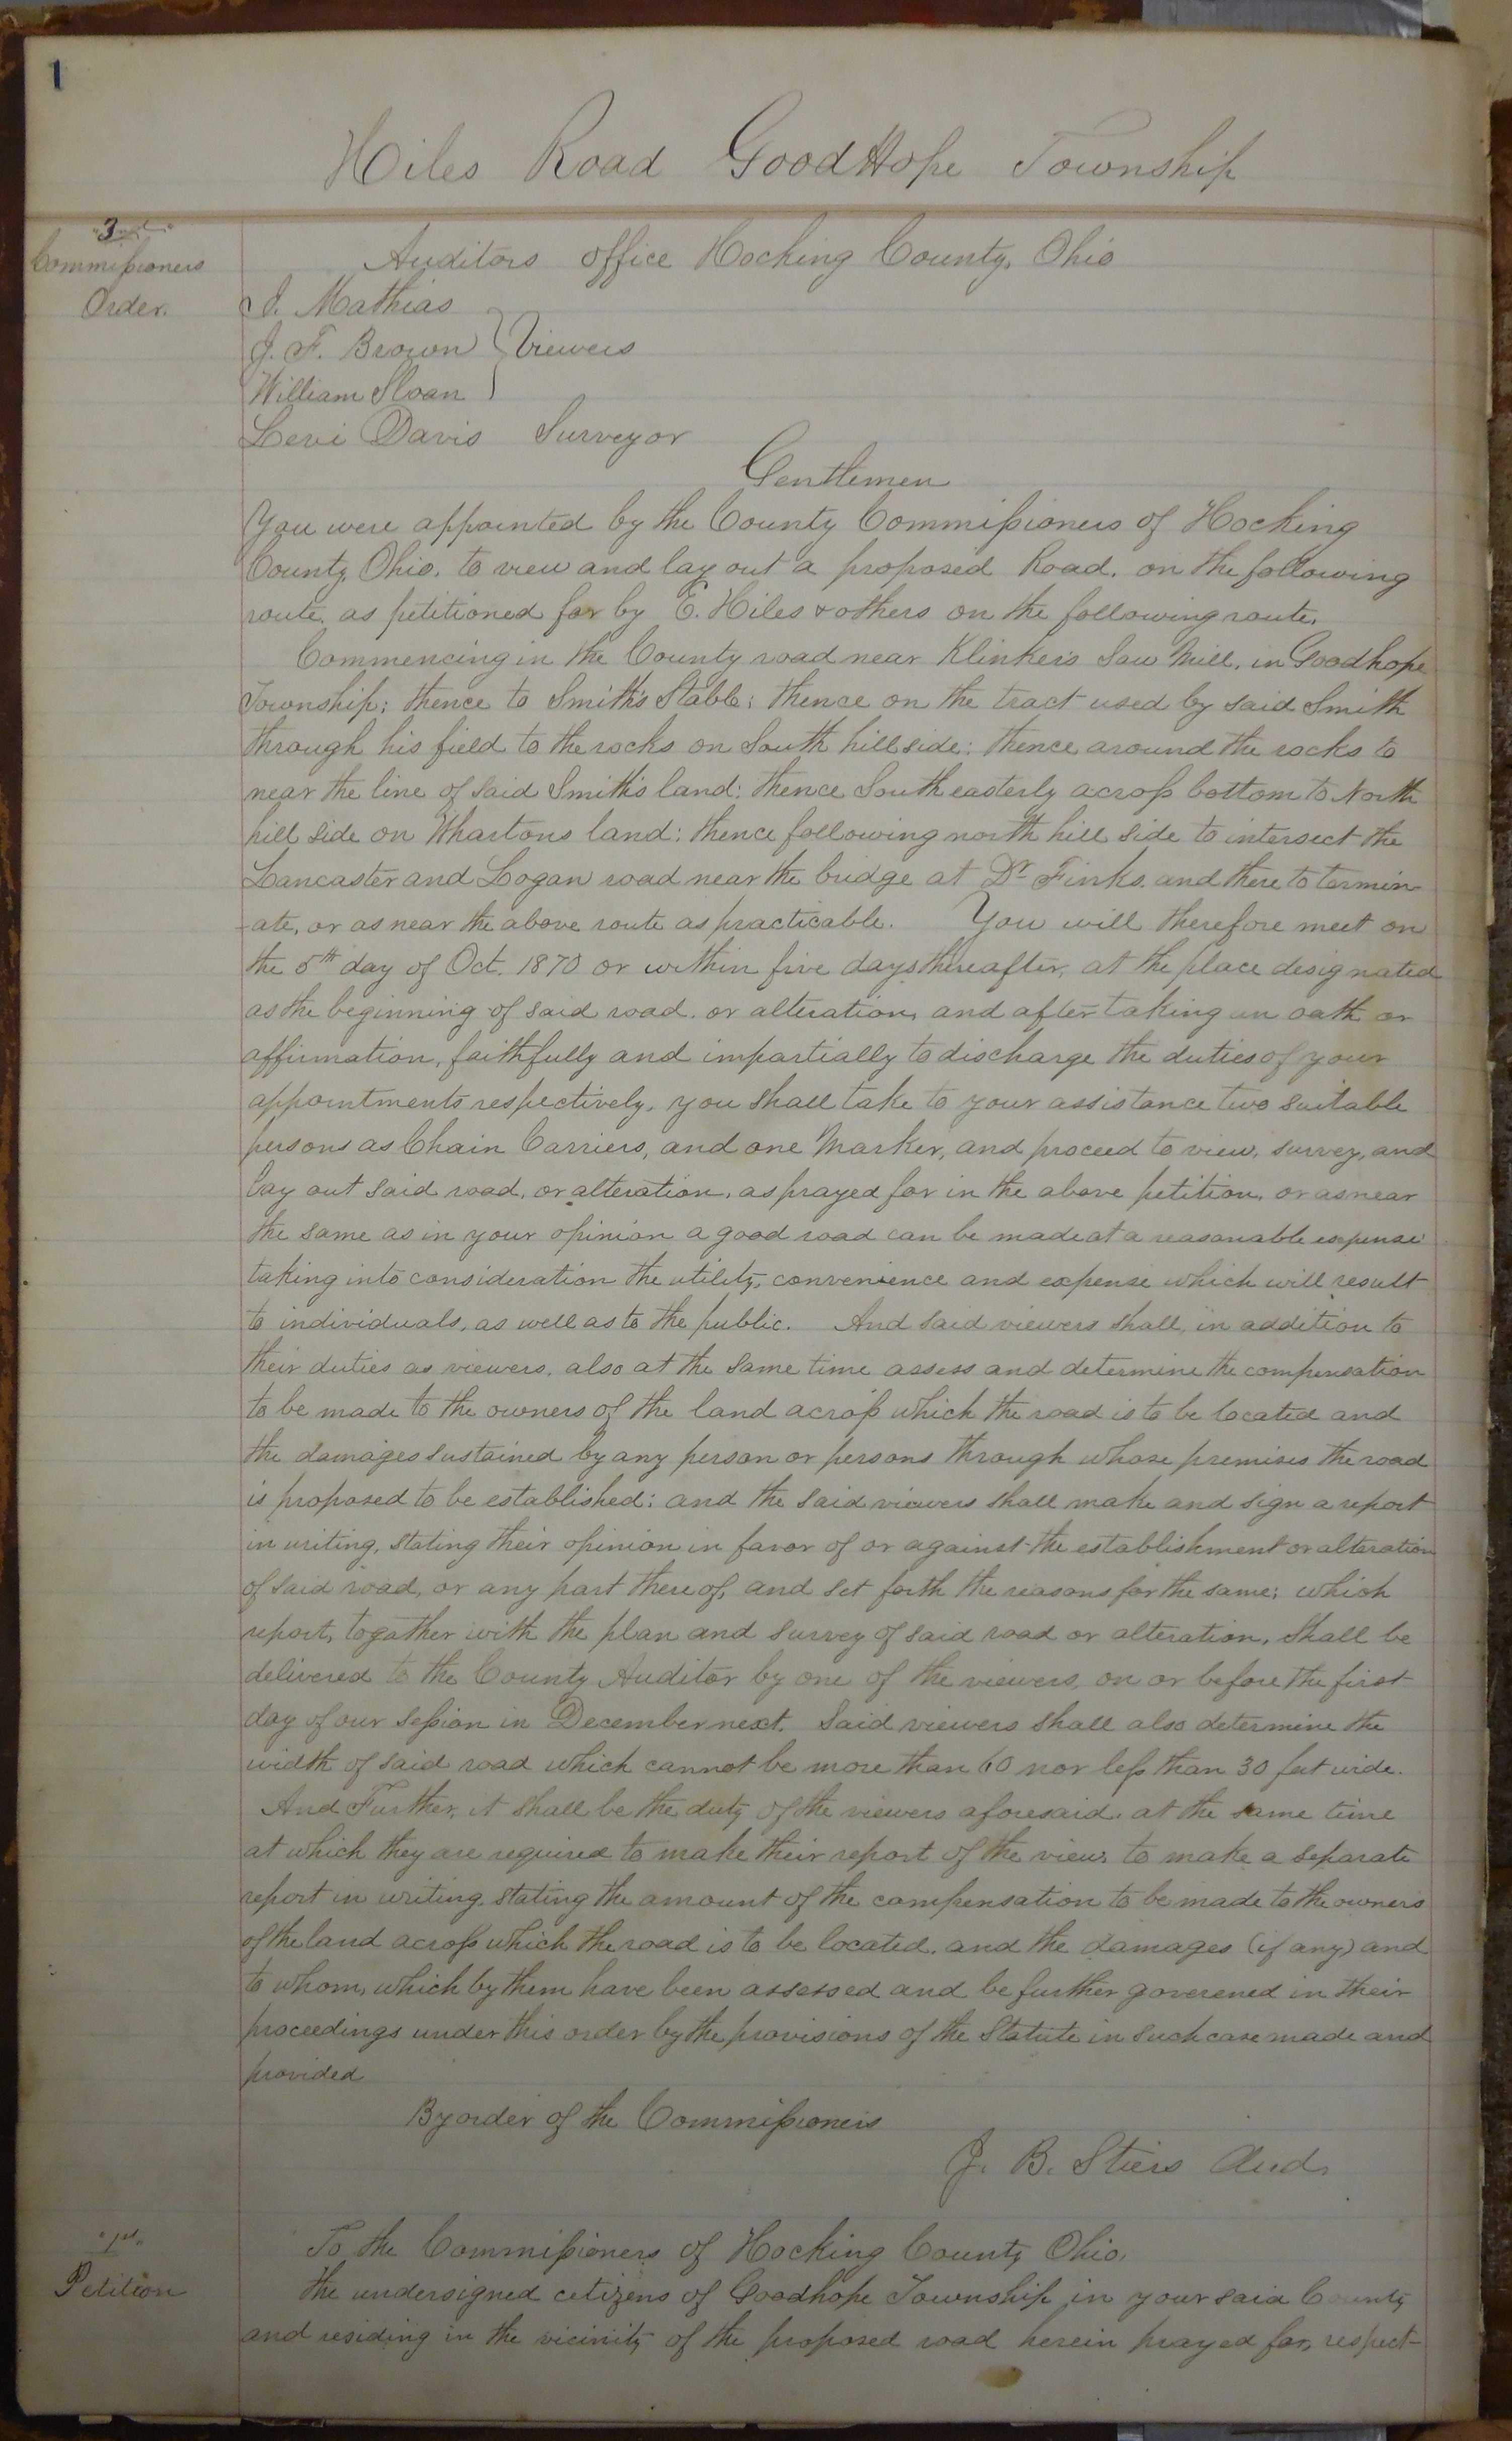 1
Hiles Road GoodHope Township
3
Commissioners
Order.
Auditors office Hocking County, Ohio
J. Mathias
J. F. Brown } Viewers
William Sloan
Levi Davis Surveyor
Gentlemen
You were appointed by the County Commissioners of Hocking
County, Ohio, to view and lay out a proposed Road, on the following
route, as petitioned for by E. Hiles & others on the following route,
Commencing in the County road near Klinker's Saw Mill, in Goodhope
Township; thence to Smith's Stable; thence on the tract used by said Smith
through his field to the rocks on South hill side; thence around the rocks to
near the line of said Smith's land; thence South easterly across bottom to North
hill side on Whartons land: thence following north hill side to intersect the
Lancaster and Logan road near the bridge at Dr Finks. and there to termin-
ate, or as near the above route as practicable. You will therefore meet on
the 5th day of Oct. 1870 or within five days thereafter, at the place designated
as the beginning of said road, or alteration, and after taking an oath or
affirmation, faithfully and impartially to discharge the duties of your
appointments respectively, you shall take to your assistance two suitable
persons as Chain Carriers, and one Marker, and proceed to view, survey, and
lay out said road, or alteration, as prayed for in the above petition, or as near
the same as in your opinion a good road can be made at a reasonable expense
taking into consideration the utility, convenience and expense which will result
to individuals, as well as to the public. And said viewers shall, in addition to
their duties as viewers, also at the same time assess and determine the compensation
to be made to the owners of the land across which the road is to be located and
the damages sustained by any person or persons through whose premises the road
is proposed to be established; and the said viewers shall make and sign a report
in writing, stating their opinion in favor of or against the establishment or alteration
of said road, or any part thereof, and set forth the reasons for the same; which
report, togather with the plan and survey of said road or alteration, shall be
delivered to the County Auditor by one of the viewers, on or before the first
day of our session in December next. Said viewers shall also determine the
width of said road which cannot be more than 60 nor less than 30 feet wide.
And Further, it shall be the duty of the viewers aforesaid, at the same time
at which they are required to make their report of the view, to make a separate
report in writing, stating the amount of the compensation to be made to the owners
of the land across which the road is to be located, and the damages (if any) and
to whom, which by them have been assessed and be further goverened in their
proceedings under this order by the provisions of the Statute in such case made and
provided
By order of the Commissioners
J. B. Stiers Aud.
"1st"
Petition
To the Commissioners of Hocking County Ohio,
the undersigned citizens of Goodhope Township in your said County
and residing in the vicinity of the proposed road herein prayed for, respect-